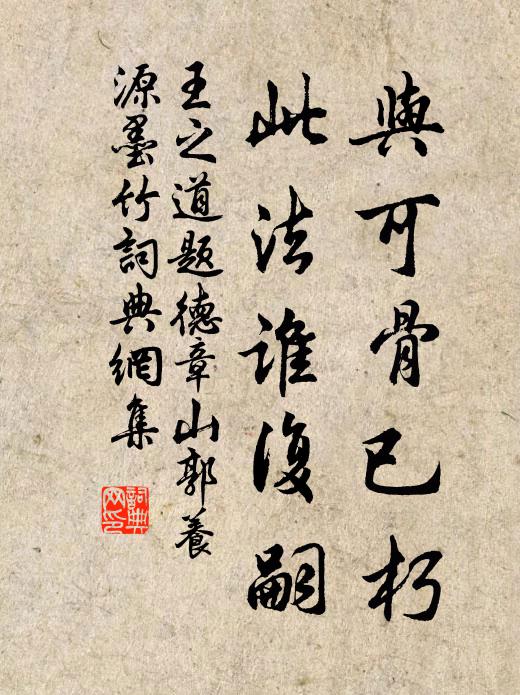 與可骨已朽
此法誰復嗣
王之道題德章山郭養
源墨竹詞典網集
詞典網印